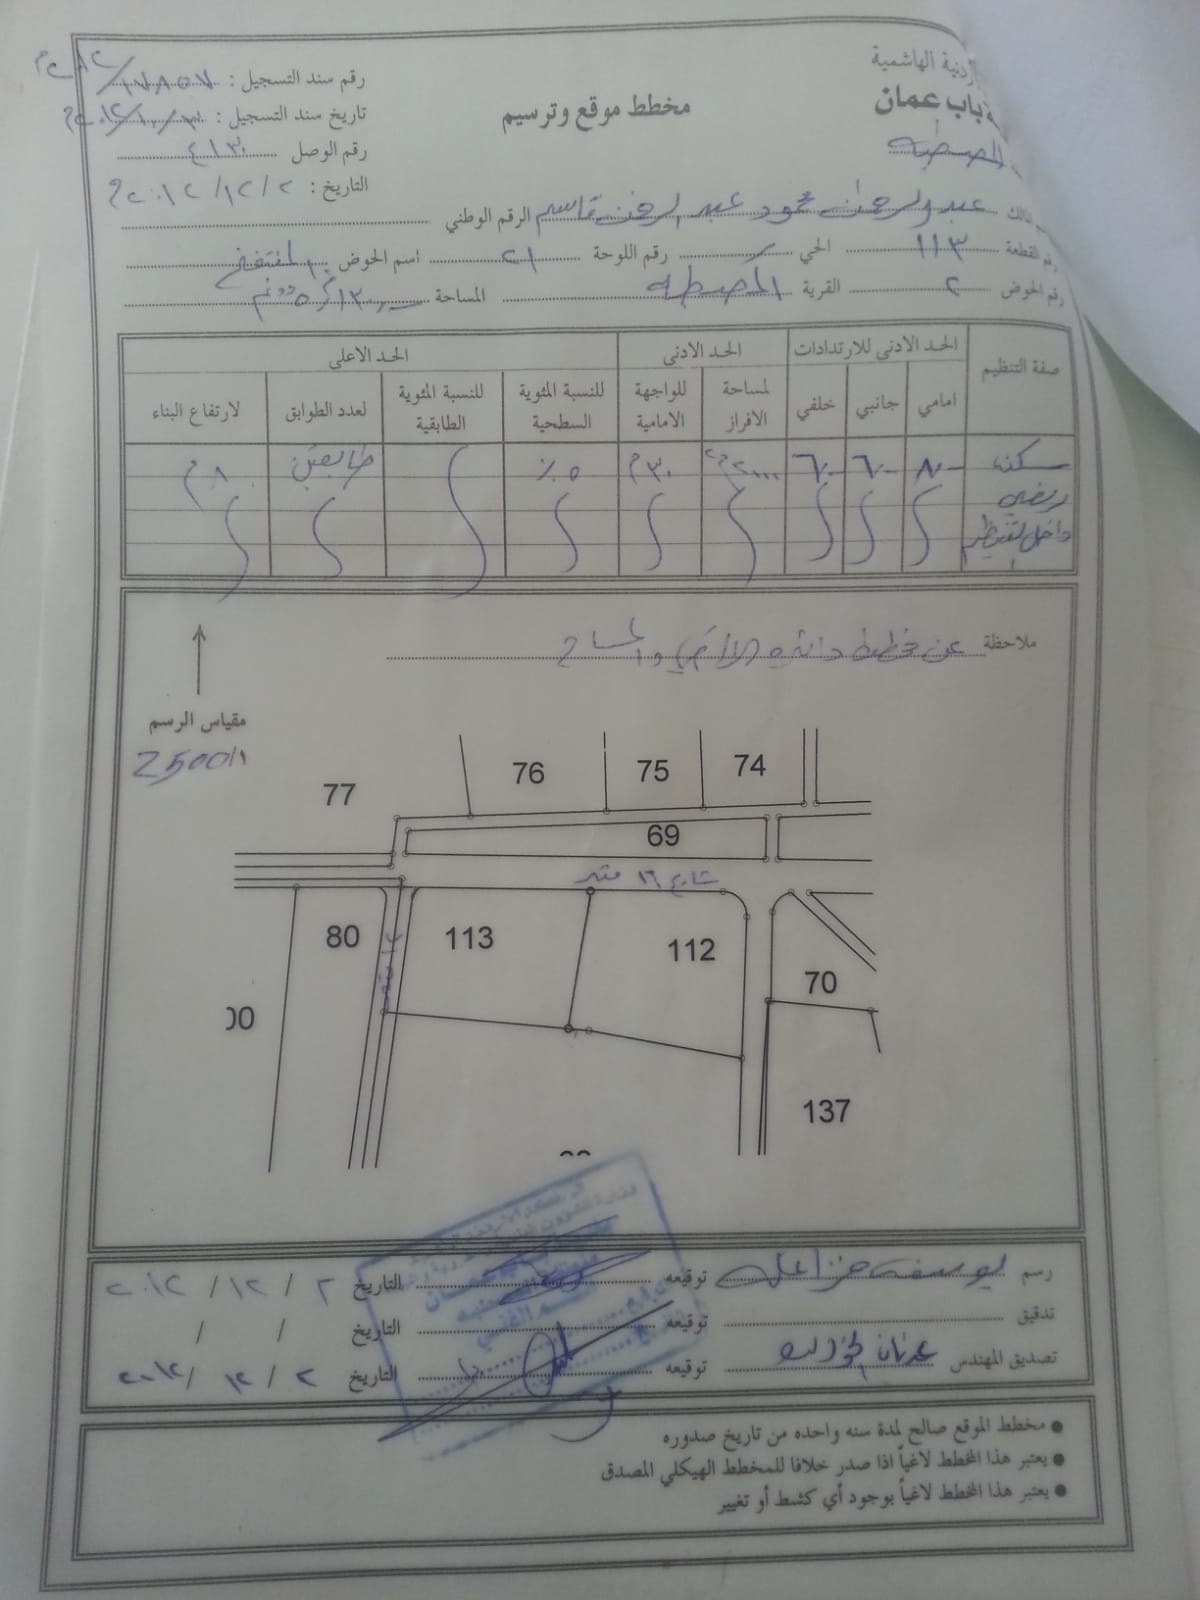 ردنية الهاشمية
باب عمان
مخطط موقع وترسيم
رقم سند التسجيل : ١٧٨٥٧/٢٠١٢م
تاريخ سند التسجيل :
رقم الوصل ٤١٣٠
التاريخ : ٢/١٢/٢٠١٢م
المالك عبد الرحمن محمود عبد الرحمن قاسم الرقم الوطني
رقم القطعة ١١٣ الحي رقم اللوحة ٢١ اسم الحوض
رقم الحوض ٢ القرية المصطبه المساحة دونم
صفة التنظيم الحد الادنى للارتدادات الحد الادنى الحد الاعلى
امامي جانبي خلفي لمساحة الافراز للواجهة الامامية للنسبة المئوية السطحية للنسبة المئوية الطابقية لعدد الطوابق لارتفاع البناء
سكن ٨٠ ٦٠ ٦٠ ٢٠٠٠م٢ ٣٠م طابقين ٨م
ريفي
داخل تنظيم
ملاحظة عن مخطط دائرة الاراضي والمساحة
مقياس الرسم
2500/1
77 76 75 74
69
شارع ١٦ متر
80 113 112 70
00
137
رسم يوسف خزاعله توقيعه التاريخ ٢ / ١٢ / ٢٠١٢
تدقيق توقيعه التاريخ / /
تصديق المهندس عدنان توقيعه التاريخ ٢ / ١٢ / ٢٠١٢
القسم الفني
● مخطط الموقع صالح لمدة سنه واحده من تاريخ صدوره
● يعتبر هذا المخطط لاغياً اذا صدر خلافا للمخطط الهيكلي المصدق
● يعتبر هذا المخطط لاغياً بوجود أي كشط أو تغيير